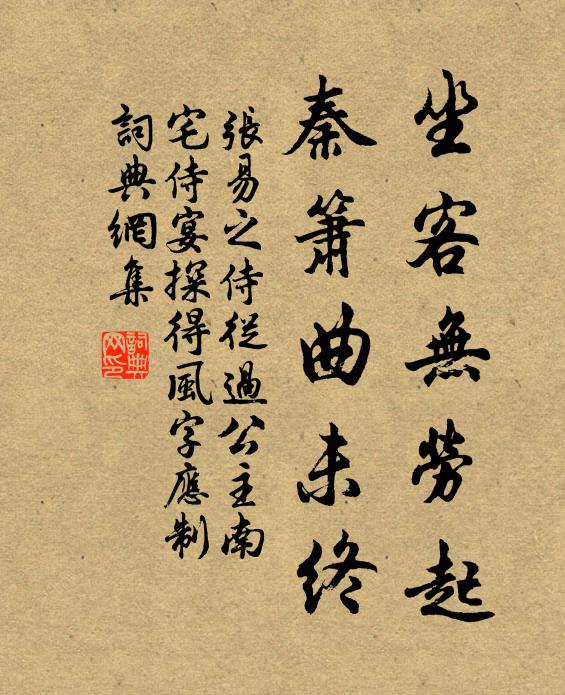 坐客無勞起
秦簫曲未終
張易之侍從過公主南
宅侍宴探得風字應制
詞典網集
詞典
网印